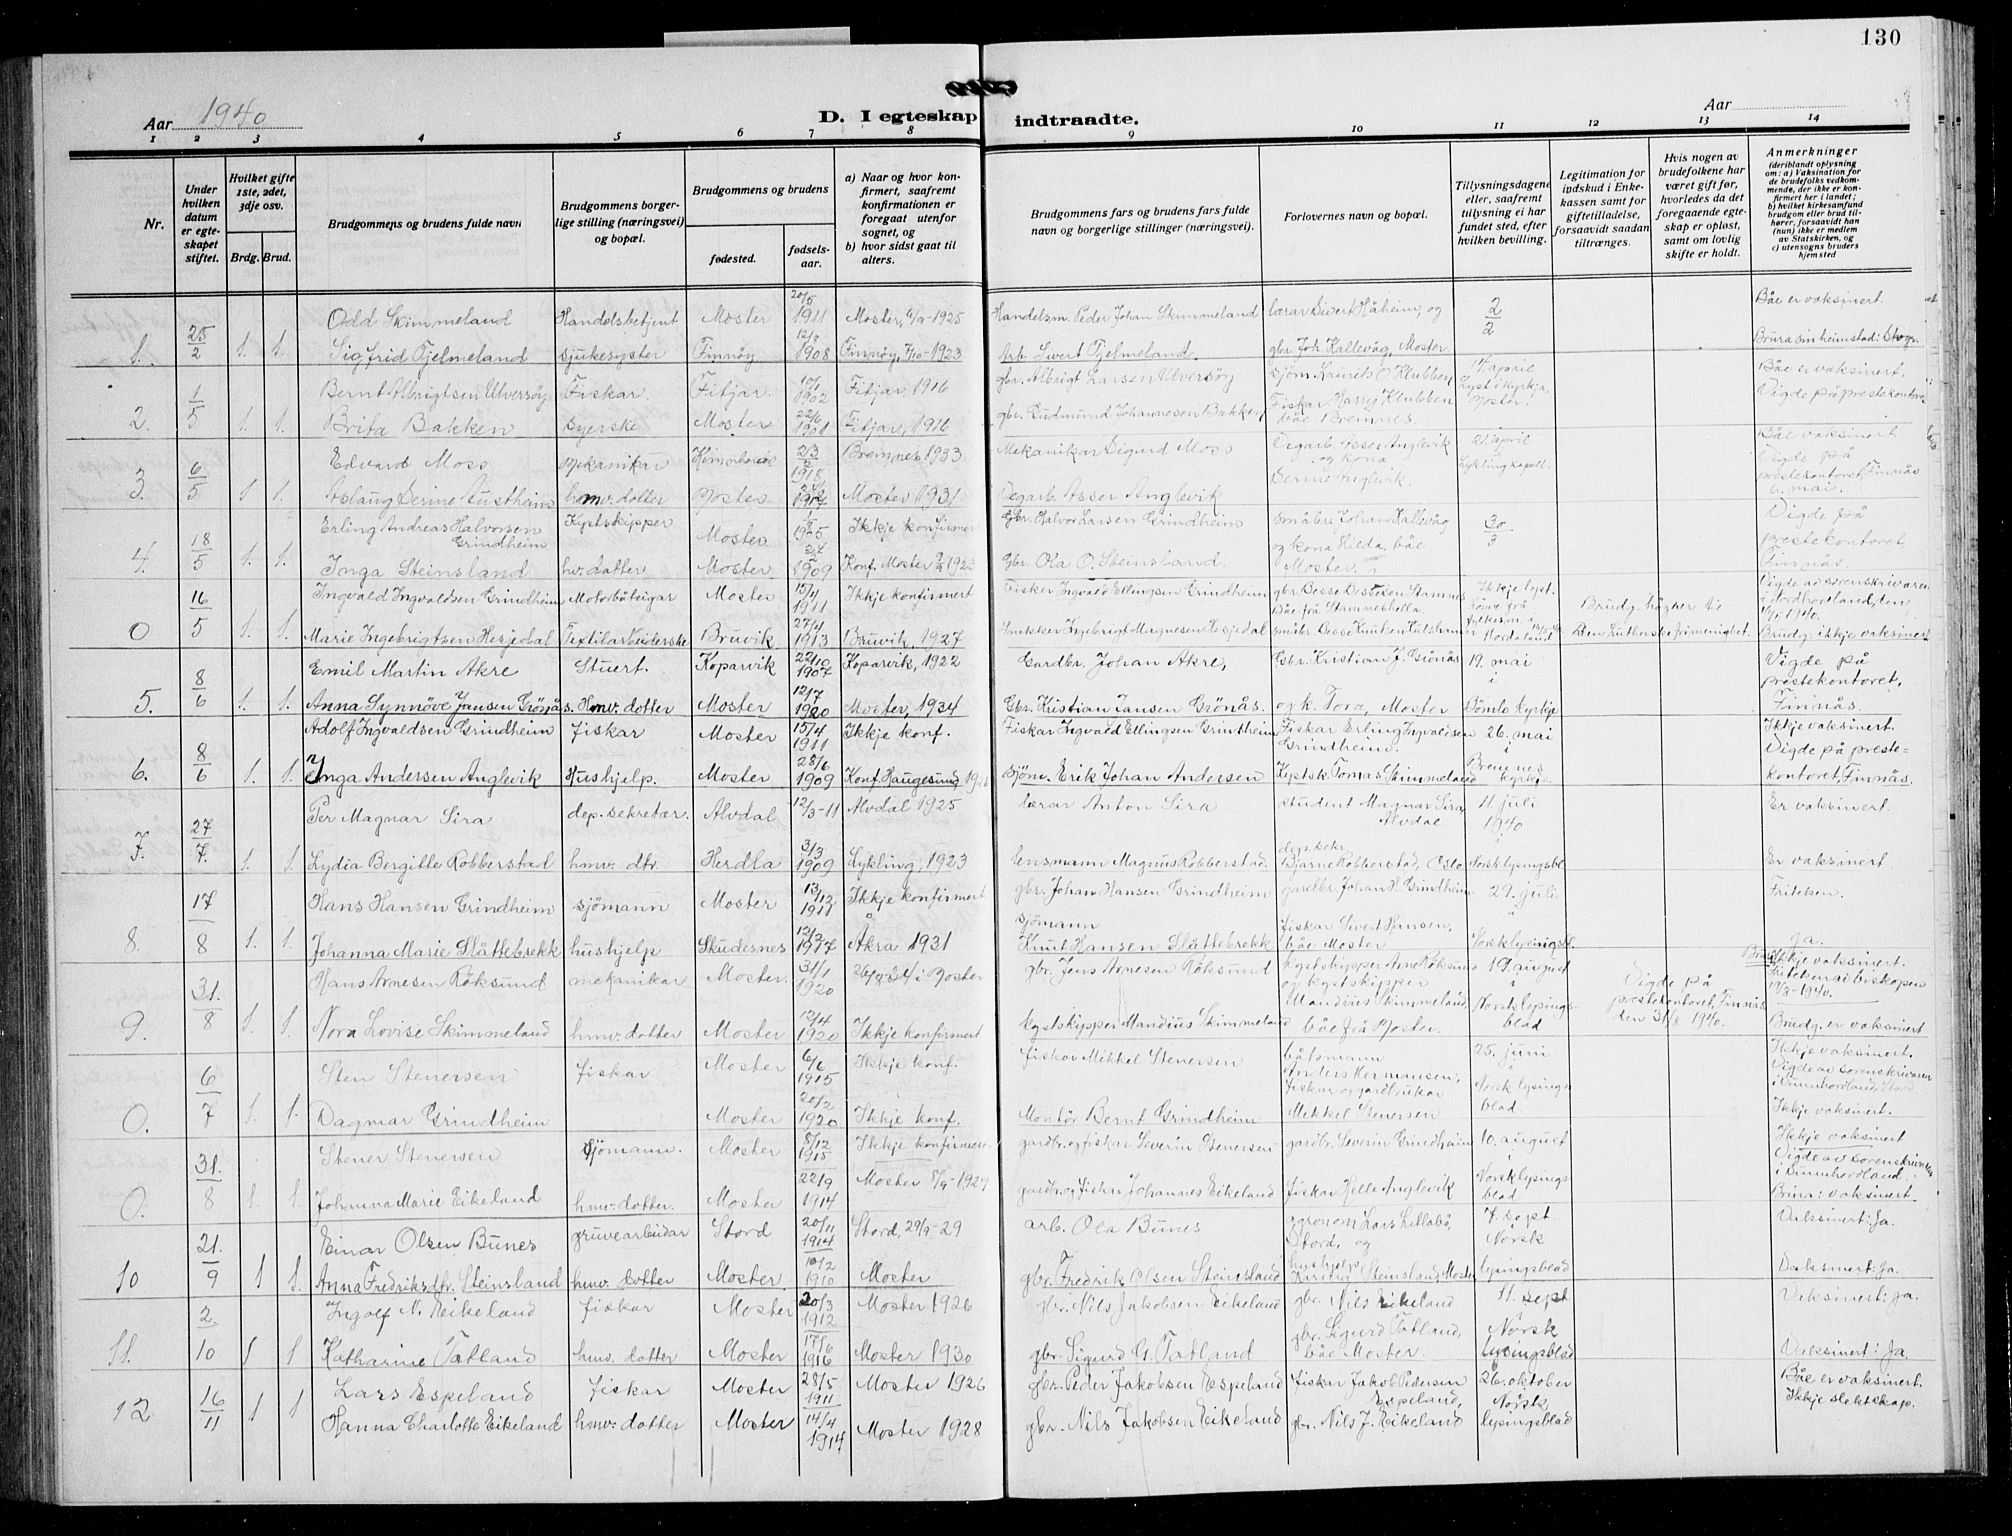 130
Aar 1940
D. I egteskap indtraadte.
Aar
1 2 3 4 5 6 7 8 9 10 11 12 13 14
Nr.
Under hvilken datum er egteskapet stiftet.
Hvilket gifte 1ste, 2det, 3dje osv.
Brdg. Brud.
Brudgommens og brudens fulde navn
Brudgommens borgerlige stilling (næringsvei) og bopæl.
Brudgommens og brudens
fødested. fødselsaar.
a) Naar og hvor konfirmert, saafremt konfirmationen er foregaat utenfor sognet, og
b) hvor sidst gaat til alters.
Brudgommens fars og brudens fars fulde navn og borgerlige stillinger (næringsvei).
Forlovernes navn og bopæl.
Tillysningsdagene eller, saafremt tilysning ei har fundet sted, efter hvilken bevilling.
Legitimation for indskud i Enkekassen samt for giftetilladelse, forsaavidt saadan tiltrænges.
Hvis nogen av brudefolkene har været gift før, hvorledes da det foregaaende egteskap er opløst, samt om lovlig skifte er holdt.
Anmerkninger (deriblandt oplysning om: a) Vaksination for de brudefolks vedkommende, der ikke er konfirmert her i landet; b) hvilket kirkesamfund brudgom eller brud tilhører, forsaavidt han (hun) ikke er medlem av Statskirken, og c) utensogns bruders hjemsted
Odd Skimmeland Handelsbetjent Moster 20/5 1911 Moster, 1925 Handelsm. Peder Johan Skimmeland lærar Sivert Håheim, og 2/2 Båe er vaksinert.
1. 25/2 1. 1. Sigfrid Fjelmeland sjukesyster Finnøy 12/8 1908 Finnøy, 1/10-1923 Arb. Sivert Fjelmeland. gbr. Joh. Kallevåg, Moster
Bernt Albrigtsen Ulversøy Fiskar Fitjar. 10/1 1902 Fitjar, 1916 gbr. Albrigt Larsen Ulversøy sjöm. Laurits O. Klubben 14. april Lyst i kyrkja, Moster. Båe er vaksinert. Vigde på prestekontoret
2. 1/5 1. 1. Brita Bakken syerske Moster 22/6 1901 Fitjar, 1916 gbr. Gudmund Johannesen Bakken Fiskar Harry Klubben båe Bremnes
Edvard Moss mekanikar 1918 Bremnes 1933 Mekanikar Sigurd Moss Vegarb. Asser Anglevik og kona Serine Anglevik 21. april Lykling kapell. Båe vaksinert Vigde på prestekontoret, Finnås 6. mai.
3. 6/5 1. 1. Aslaug Serine Austheim hmv. dotter Moster Moster 1931 Vegarb. Asser Anglevik
Erling Andreas Halvorsen Grindheim Kystskipper Moster 1905 Ikkje konfirmer Gbr. Halvor Larsen Grindheim småbr. Johan Kallevåg og kona Hilda, båe Moster. 30/3 Vigde på prestekontoret, Finnås
4. 18/5 1. 1. Inga Steinsland hv. dotter Moster 1909 Konf. Moster 1923 Gbr. Ola O. Steinsland.
Ingvald Ingvaldsen Grindheim Motorbåteigar Moster 15/4 1911 Ikkje konfirmert Fisker Ingvald Ellingsen Grindheim Ikkje lyst. Brudg. høyrer til Den Lutherske frimenighet. Vigde av sorenskrivaren i Nordhordland, den
0 16/5 1. 1. Marie Ingebrigtsen Hesjedal Textilarbeiderske Bruvik 27/4 1913 Bruvik, 1927 Snekker Ingebrigt Magnesen Hesjedal Brudg. ikkje vaksinert
Emil Martin Akre Stuert. Koparvik 22/10 1907 Koparvik, 1922 Gardbr. Johan Akre, Gbr. Kristian J. Grönås 19. mai i Vigde på prestekontoret, Finnås.
5. 8/6 1. 1. Anna Synnöve Jansen Grönås. Hmv. dotter Moster 12/7 1920 Moster, 1934 Gbr. Kristian Jansen Grönås. og k. Tora, Moster Bömlo kyrkje
Adolf Ingvaldsen Grindheim fiskar Moster 15/4 1911 Ikkje konf. Fiskar Ingvald Ellingsen Grindheim Fiskar Erling Ingvaldsen Grindheim. 26. mai i Bremnes kyrkje. Ikkje vaksinert. Vigde på prestekontoret, Finnås.
6. 8/6 1. 1. Inga Andersen Anglevik Hushjelp. Moster 28/6 1909 Konf. Haugesund sjöm. Erik Johan Andersen Kystsk. Tomas Skimmeland
Per Magnar Sira dep. sekretær. Alvdal 12/3-11 Alvdal 1925 lærar Anton Sira student Magnar Sira, Alvdal. 11. juli 1940 Er vaksinert.
7. 27/7. 1. 1. Lydia Bergitte Robberstad hmv. dtr. Herdla 3/3 1909 Lykling, 1923 lensmann Magnus Robberstad. dep. sekr. Bjarne Robberstad, Oslo Norsk lysingsbl. Er vaksinert
Hans Hansen Grindheim sjömann Moster 13/12 1911 Ikkje konfirmert gbr. Johan Hansen Grindheim gardbr. Johan H. Grindheim 29. juli i Friteken.
8. 17/8 1. 1. Johanna Marie Slåttebrekk hushjelp Skudesnes 12/2 1917 Åkra 1931 sjömann Knut Hansen Slåttebrekk fiskar Sivert Hansen, båe Moster Norsk lysingsbl. Ja.
Hans Arnesen Röksund mekanikar Moster. 31/1 1920 26/8 34 i Moster gbr. Jens Arnesen Röksund kystskipper Arne Röksund og kystskipper Mandius Skimmeland, båe frå Moster. 19. august i Norsk lysingsblad Vigde på prestekontoret, Finnås den 31/8-1940. Ikkje vaksinert. Friteken av biskopen 19/3-1940.
9. 31./8 1. 1. Nora Lovise Skimmeland hmv. dotter Moster 12/4 1920 Ikkje konfirmert kystskipper Mandius Skimmeland Brudg. er vaksinert
Sten Stenersen fiskar Moster 6/6 1915 Ikkje konf. fiskar Mikkel Stenersen båtsmann Anders Hermansen, fiskar og gardbrukar Mikkel Stenersen 25. juni Norsk lysingsblad Ikkje vaksinert. Vigde av sorenskrivaren i Sunnhordland, Stord
0. 6/7 1. 1. Dagmar Grindheim Moster 20/2 1920 Ikkje konf. Montör Bernt Grindheim Ikkje vaksinert.
Stener Stenersen Sjömann. Moster 8/12 1915 Ikkje konfirmert gardbr. og fiskar Severin Stenersen gardbr. Severin Grindheim 10. august i Norsk lysingsblad Ikkje vaksinert Vigde av sorenskrivaren i Sunnhordland.
0. 31./8 1. 1. Johanna Marie Eikeland hmv. dotter. Moster 22/9 1914 Moster 8/9-1929 gardbr. og fiskar Johannes Eikeland fiskar Helle Anglevik Brura: vaksinert.
Einar Olsen Bunes gruvearbeidar Stord 20/11 1914 Stord, 29/9-29 arb. Ola Bunes agronom Lars Litlabö, Stord, og 7. sept. Norsk lysingsblad Vaksinert: Ja.
10 21./9 1 1. Anna Fredriksdtr. Steinsland hmv. dotter Moster 10/2 1910 Moster gbr. Fredrik Olsen Steinsland Steinsland, Moster Vaksinert: Ja.
Ingolf N. Eikeland fiskar Moster 20/3 1912 Moster 1926 gbr. Nils Jakobsen Eikeland gbr. Nils Eikeland 11. sept Norsk lysingsblad Vaksinert: Ja.
11. 2./10 1 1 Katharine Tatland hmv. dotter Moster 17/6 1916 Moster 1930 gbr. Sigurd G. Tatland gbr. Sigurd Tatland, båe Moster. Vaksinert: Ja.
Lars Espeland fiskar Moster 28/5 1911 Moster 1926 gbr. Peder Jakobsen Espeland fiskar Jakob Pedersen Espeland, 26. oktober Norsk lysingsblad Båe er vaksinert. Ikkje slektskap.
12 16/11 1 1 Hanna Charlotte Eikeland hmv. dotter Moster 14/4 1914 Moster 1928 gbr. Nils Jakobsen Eikeland gbr. Nils J. Eikeland